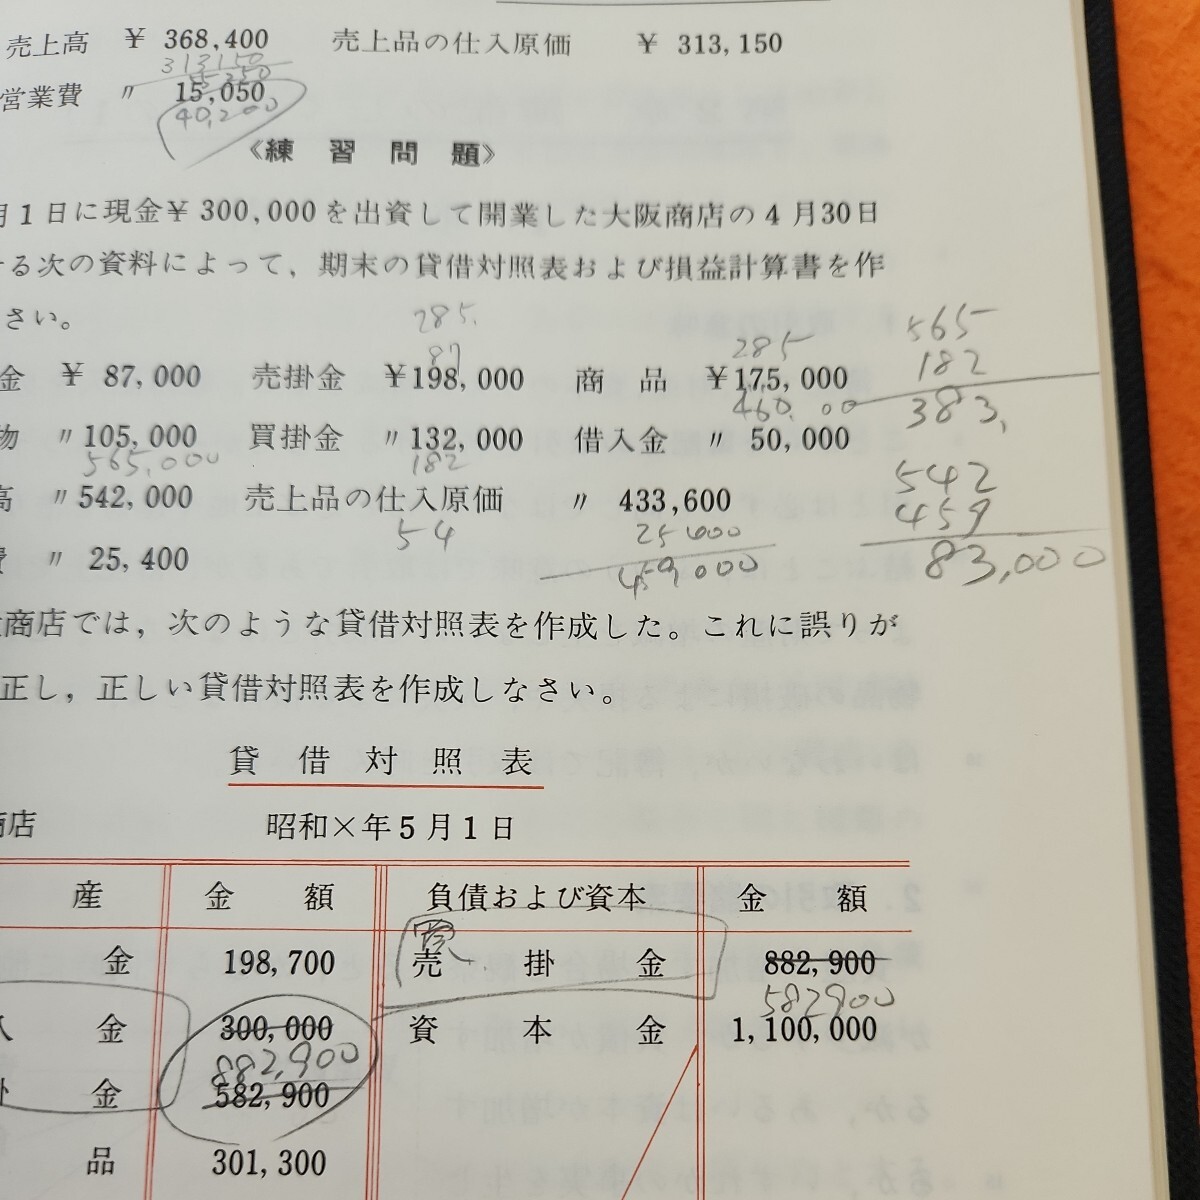 売上高 ¥ 368,400 売上品の仕入原価 ¥ 313,150
313150
55250
営業費 〃 15,050
40,200
《練習問題》
月1日に現金¥300,000を出資して開業した大阪商店の4月30日
る次の資料によって，期末の貸借対照表および損益計算書を作
さい。
285.
87
285
565
182
383,
金 ¥ 87,000 売掛金 ¥198,000 商品 ¥175,000
460.00
物 〃105,000 買掛金 〃132,000 借入金 〃 50,000
565,000
182
高 〃542,000 売上品の仕入原価 〃 433,600
54
25400
459000
542
459
83,000
費 〃 25,400
商店では，次のような貸借対照表を作成した。これに誤りが
正し，正しい貸借対照表を作成しなさい。
貸借対照表
商店 昭和×年5月1日
産 金額 負債および資本 金額
買
金 198,700 売掛金 882,900
582900
金 300,000 資本金 1,100,000
882,900
掛金 582,900
品 301,300